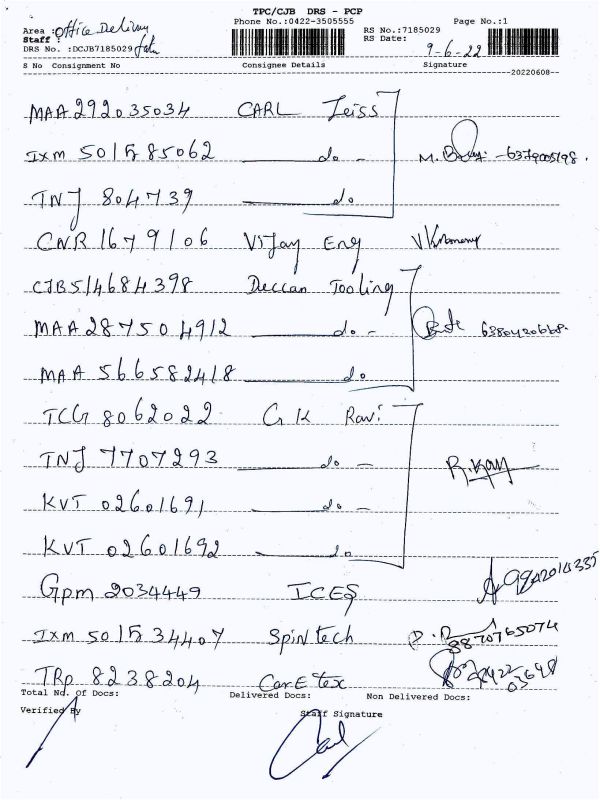 TPC/CJB DRS - PCP
Phone No.:0422-3505555 Page No.:1
Area : Office Delivery RS No.:7185029
Staff : RS Date:
DRS No. :DCJB7185029 9-6-22
S No Consignment No Consignee Details Signature
20220608
MAA 292035034 CARL Zeiss
IXM 501585062 do -
TNJ 804739 do
CNR 1679106 Vijay Eng
CJB 514684398 Deccan Tooling
MAA 287504912 do -
MAA 566582418 do
TCG 8062022 G K Ravi
TNJ 7707293 do -
KVT 02601691 do -
KVT 02601692 do
Gpm 2034449 ICES
IXM 501534407 Spintech
8870765074
TRP 8238204 Car E tex
Total No. Of Docs: Delivered Docs: Non Delivered Docs:
Verified By Staff Signature